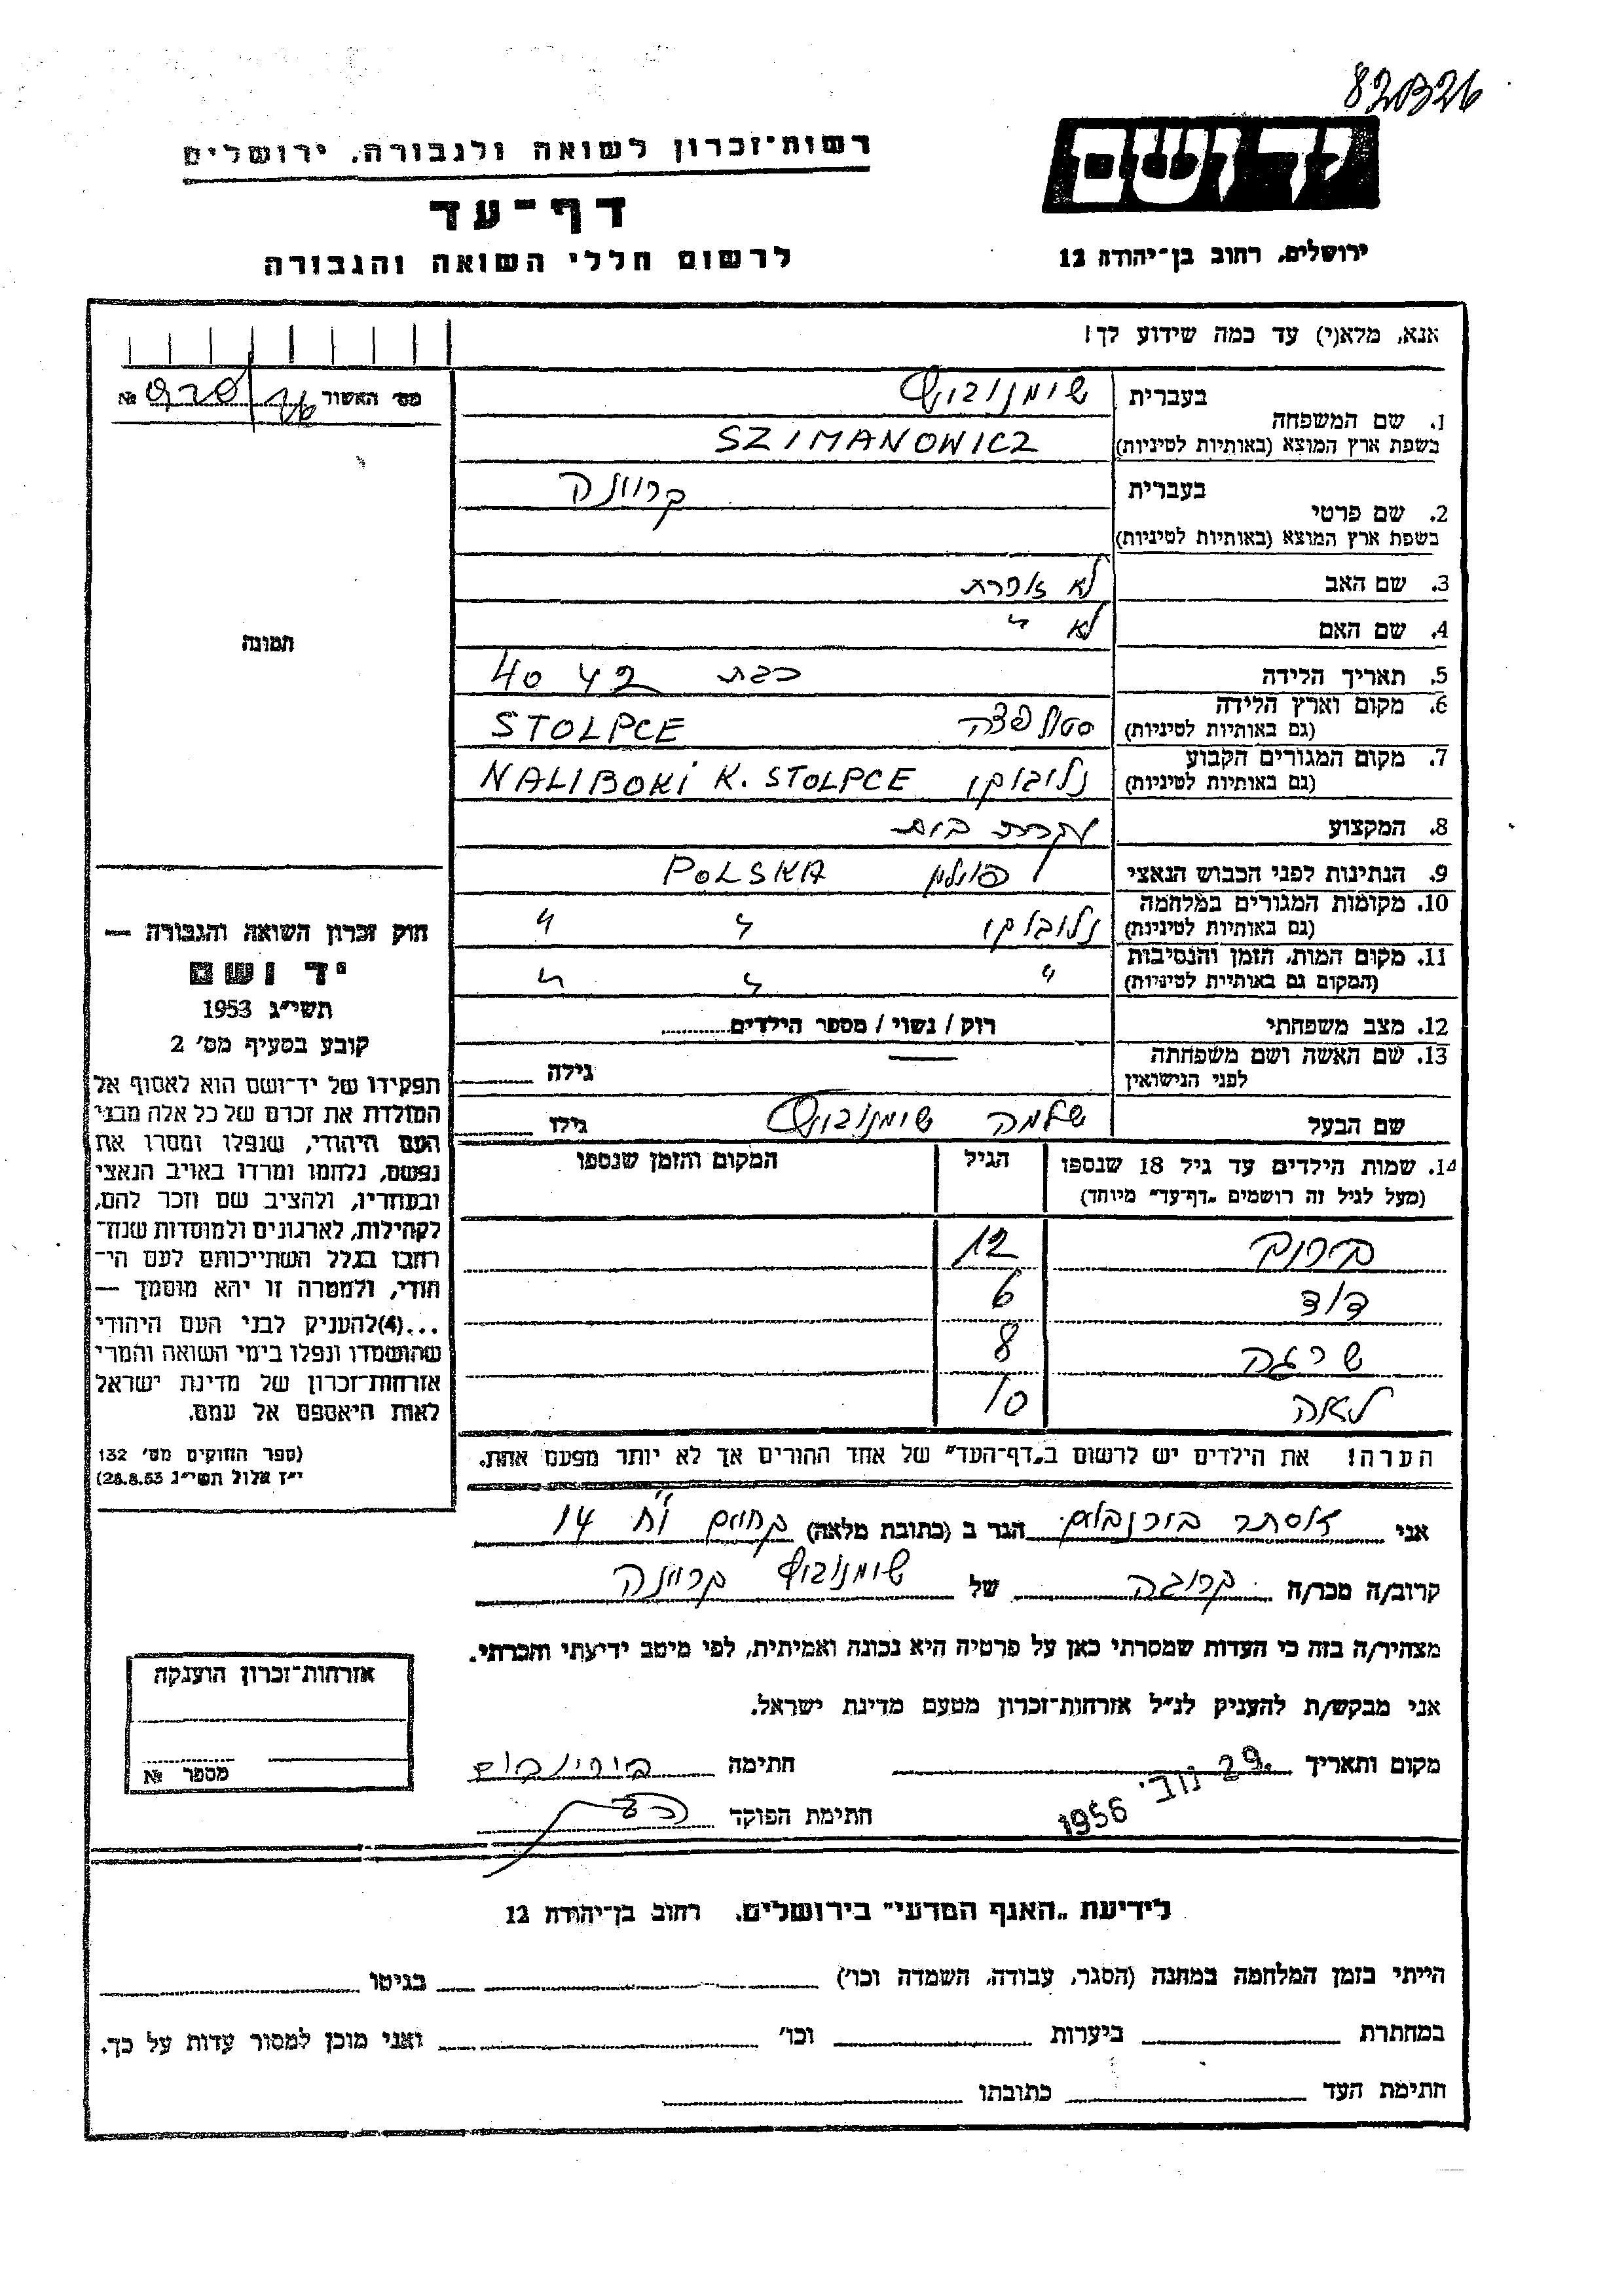 820326
רשות־זכרון לשואה ולגבורה, ירושלים
דף־עד
לרשום חללי השואה והגבורה
יד ושם
ירושלים, רחוב בן־יהודה 12
אנא, מלא(י) עד כמה שידוע לך!
מס׳ האשור №
1. שם המשפחה
בעברית שימנוביץ
בשפת ארץ המוצא (באותיות לטיניות) SZIMANOWICZ
2. שם פרטי
בעברית
בשפת ארץ המוצא (באותיות לטיניות)
3. שם האב לא זוכרת
4. שם האם לא "
5. תאריך הלידה כבת 42 40
6. מקום וארץ הלידה (גם באותיות לטיניות) סטולפצה STOLPCE
7. מקום המגורים הקבוע (גם באותיות לטיניות) נליבוקי NALIBOKI K. STOLPCE
8. המקצוע עקרת בית
9. הנתינות לפני הכבוש הנאצי פולין POLSKA
10. מקומות המגורים במלחמה (גם באותיות לטיניות) נליבוקי " "
11. מקום המות, הזמן והנסיבות (המקום גם באותיות לטיניות) " " "
12. מצב משפחתי רוק / נשוי / מספר הילדים
13. שם האשה ושם משפחתה לפני הנישואין גילה
שם הבעל שלמה שימנוביץ גילו
14. שמות הילדים עד גיל 18 שנספו
(מעל לגיל זה רושמים „דף־עד״ מיוחד)
הגיל
המקום והזמן שנספו
12
דוד 6
שרגה 8
לאה 10
הערה! את הילדים יש לרשום ב„דף־העד״ של אחד ההורים אך לא יותר מפעם אחת.
תמונה
חוק זכרון השואה והגבורה —
יד ושם
תשי״ג 1953
קובע בסעיף מס׳ 2
תפקידו של יד־ושם הוא לאסוף אל
המולדת את זכרם של כל אלה מבני
העם היהודי, שנפלו ומסרו את
נפשם, נלחמו ומרדו באויב הנאצי
ובעוזריו, ולהציב שם וזכר להם,
לקהילות, לארגונים ולמוסדות שנח־
רחבו בגלל השתייכותם לעם הי־
הודי, ולמטרה זו יהא מוסמך —
...(4)להעניק לבני העם היהודי
שהושמדו ונפלו בימי השואה והמרי
אזרחות־זכרון של מדינת ישראל
לאות היאספם אל עמם.
(ספר החוקים מס׳ 132
י״ז אלול תשי״ג 28.8.53)
אני אסתר בורנבלום הגר ב (כתובת מלאה) 14
קרוב/ה מכר/ה קרובה של שימנוביץ
מצהיר/ה בזה כי העדות שמסרתי כאן על פרטיה היא נכונה ואמיתית, לפי מיטב ידיעתי והכרתי.
אני מבקש/ת להעניק לנ״ל אזרחות־זכרון מטעם מדינת ישראל.
מקום ותאריך 29 נוב׳ 1956 חתימה
חתימת הפוקד
אזרחות־זכרון הוענקה
מספר №
לידיעת „האגף המדעי״ בירושלים, רחוב בן־יהודה 12
הייתי בזמן המלחמה במחנה (הסגר, עבודה, השמדה וכו׳) בגיטו
במחתרת ביערות וכו׳ ואני מוכן למסור עדות על כך.
חתימת העד כתובתו